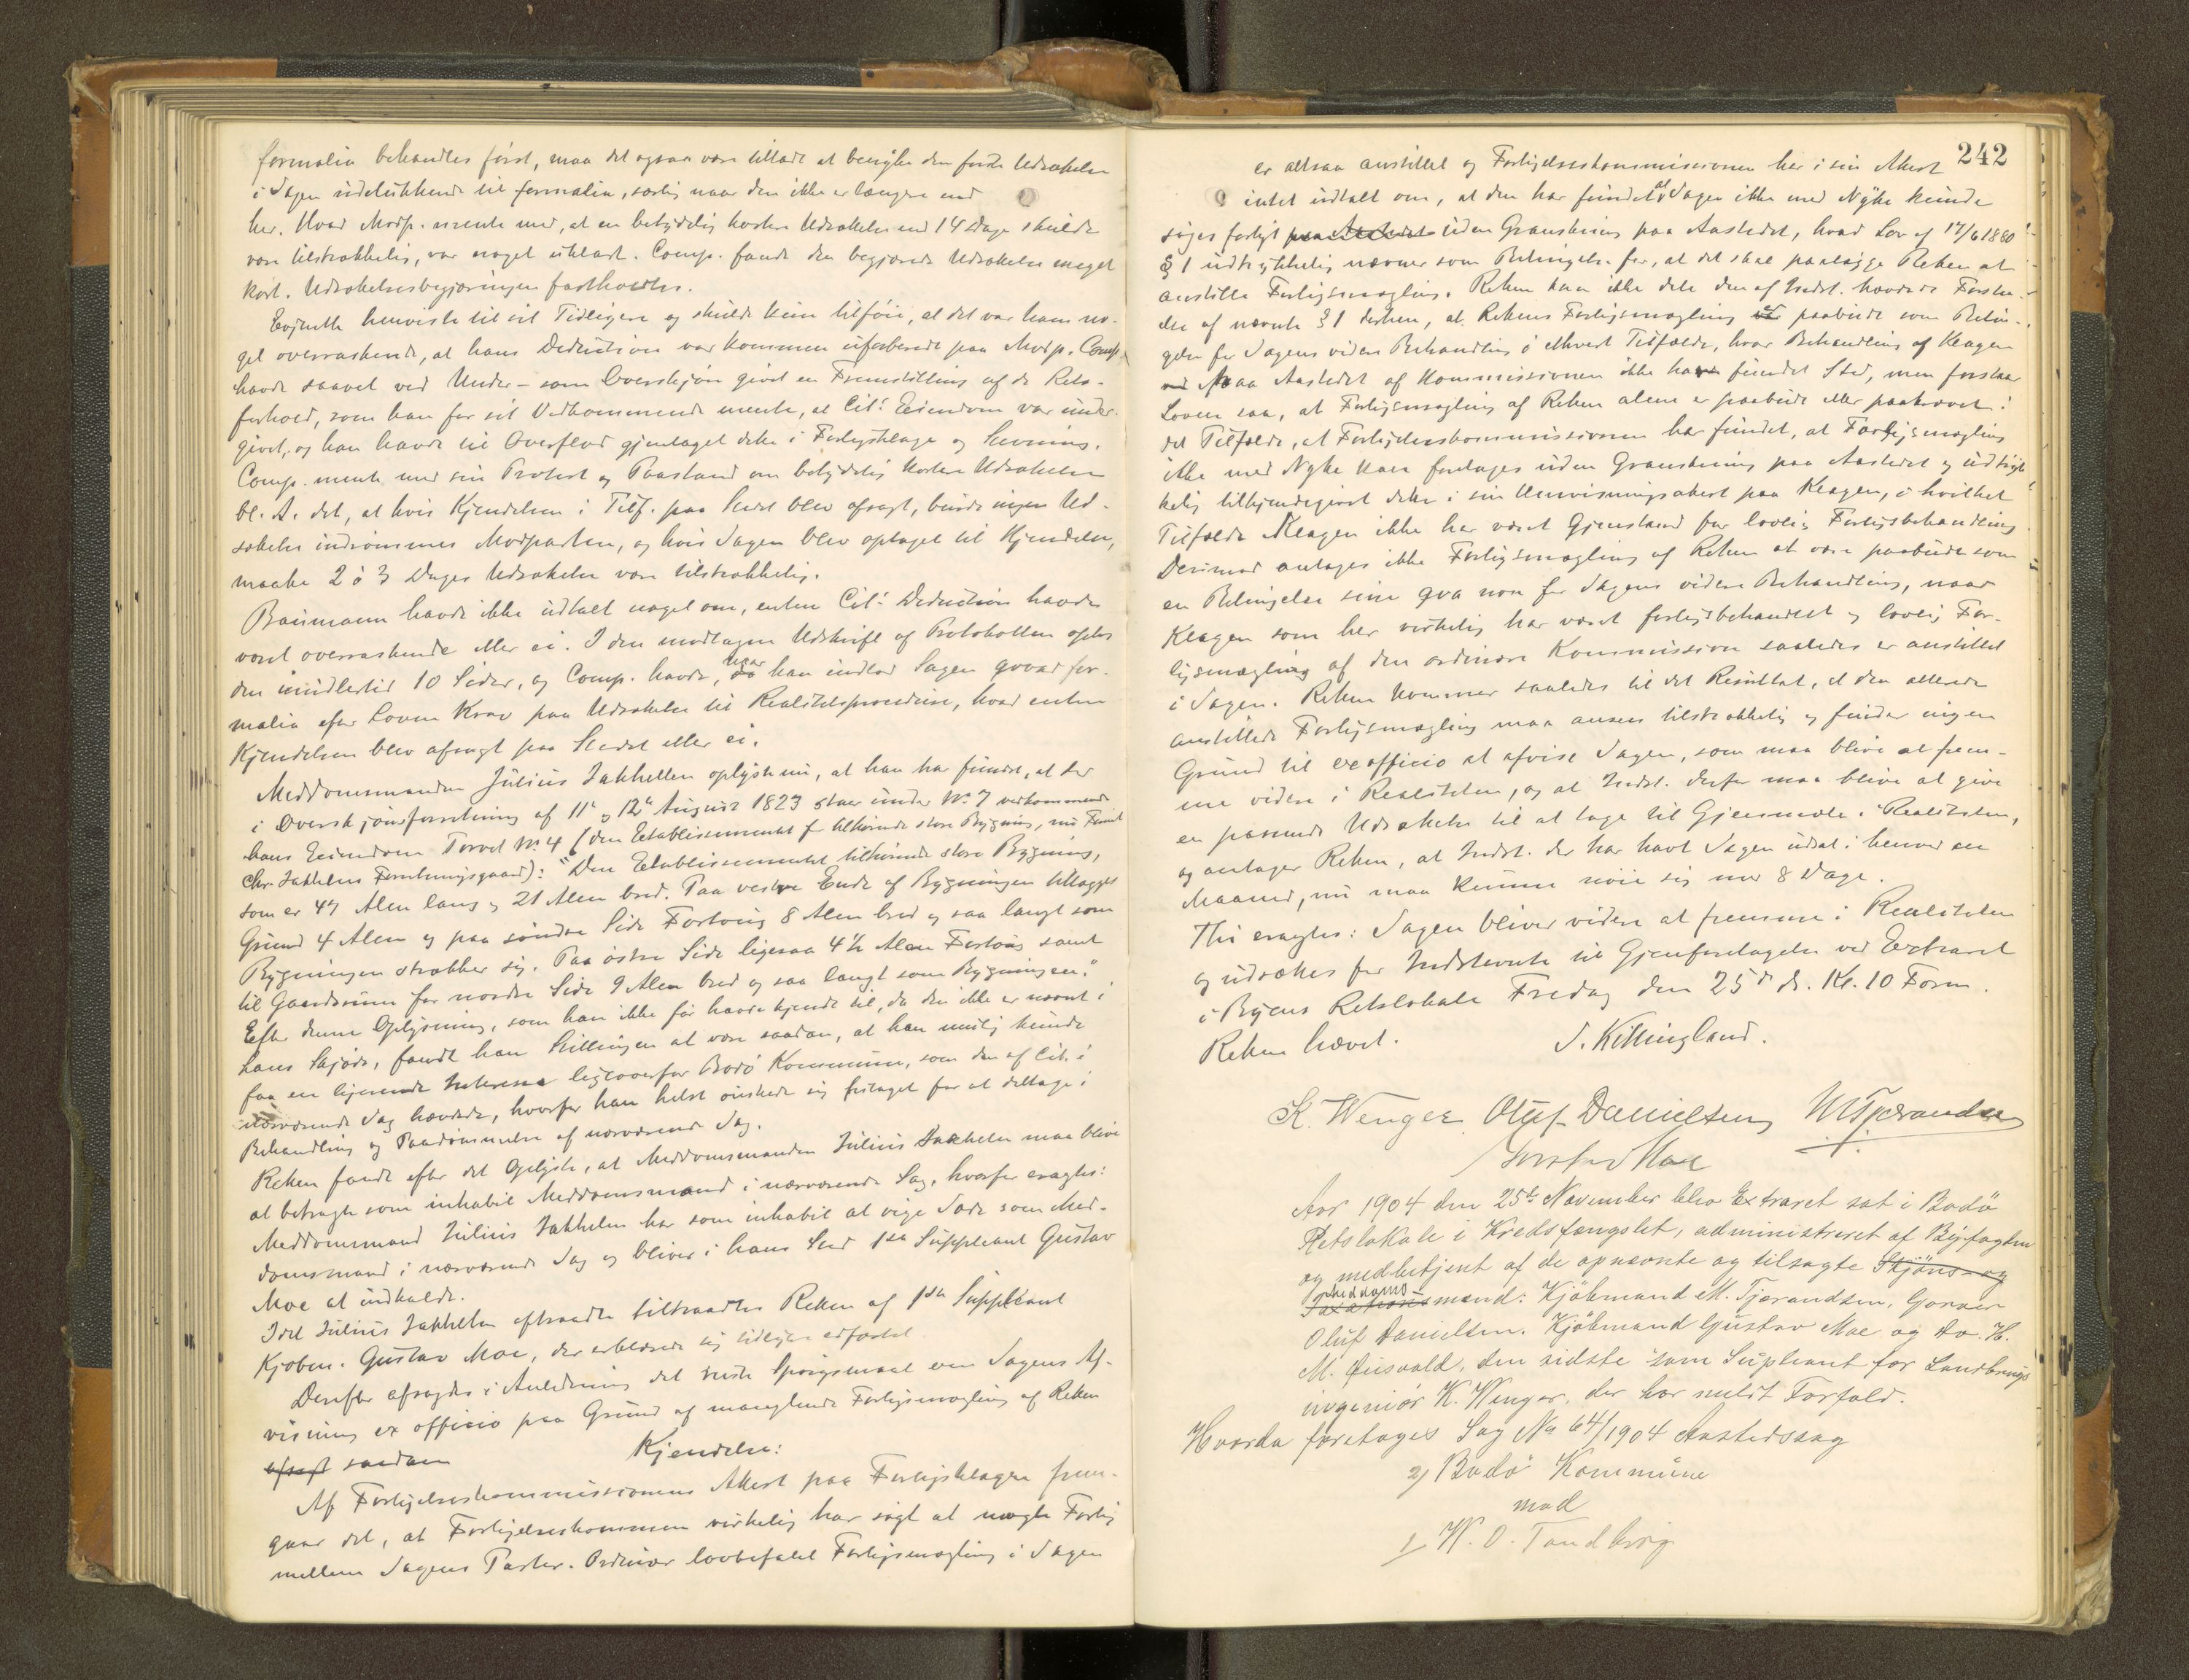 formalia behandles först, maa det ogsaa være tilladt at benytte den förste Udsættelse
i Sagen udelukkende til formalia, særlig naar den ikke er længere end
her. Hvad Modp. mente med, at en betydelig kortere Udsættelse end 14 Dage skulde
være tilstrækkelig, var noget uklart. Comp. fandt den begjærede Udsættelse meget
kort. Udsættelsesbegjæringen fastholdtes.
Evjenth henviste til sit Tidligere og skulde kun tilföie, at det var ham no-
get overraskende, at hans Deduction var kommen uforberedt paa Modp. Comp.
havde saavel ved Under- som Overskjön givet en Fremstilling af de Rets-
forhold, som han for sit Vedkommende mente, at Cit.s Eiendom var under-
givet, og han havde til Overflod gjentaget dette i Forligsklage og Stevning.
Comp. mente med sin Protest og Paastand om betydelig kortere Udsættelse
bl. A. det, at hvis Kjendelsen i Tilf. paa Stedet blev afsagt, burde ingen Ud-
sættelse indrömmes Modparten, og hvis Sagen blev optaget til Kjendelse,
maatte 2 à 3 Dages Udsættelse være tilstrækkelig.
Baumann havde ikke udtalt noget om, enten Cit.s Deduction havde
været overraskende eller ei. I den modtagne Udskrift af Protokollen optog
den imidlertid 10 Sider, og Comp. havde, naar han indlod Sagen qvoad for-
malia efter Loven Krav paa Udsættelse til Realitetsprocedure, hvad enten
Kjendelsen blev afsagt paa Stedet eller ei.
Meddomsmanden Julius Jakhelln oplyste nu, at han har fundet, at der
i Overskjönsforretning af 11te og 12te August 1823 staar under No. 7 vedkommende
hans Eiendom Torvet No. 4 (den Etablissementet tilhörende store Bygning, nu
Chr. Jakhelns Forretningsgaard): "Den Etablissementet tilhörende store Bygning,
som er 47 Alen lang og 21 Alen bred. Paa vestre Ende af Bygningen tillægges
Grund 4 Alen og paa söndre Side Fortoug 8 Alen bred og saa langt som
Bygningen strækker sig. Paa östre Side ligesaa 4½ Alen Fortoug samt
til Gaardsrum for nordre Side 9 Alen bred og saa langt som Bygningen."
Efter denne Oplysning, som han ikke för havde kjendt til, da den ikke er nævnt i
hans Skjöde, fandt han Stillingen at være saadan, at han mulig kunde
faa en lignende Interesse ligeoverfor Bodö Kommune, som den af Cit. i
nærværende Sag hævdede, hvorfor han helst önskede sig fritaget for at deltage i
Behandling og Paadömmelse af nærværende Sag.
Retten fandt efter det Oplyste, at Meddomsmanden Julius Jakheln maa blive
at betragte som inhabil Meddomsmand i nærværende Sag, hvorfor eragtes:
Meddommsmand Julius Jakheln har som inhabil at vige Sæde som Med-
domsmand i nærværende Sag og bliver i hans Sted 1ste Suppleant Gustav
Moe at indkalde.
Idet Julius Jakheln aftraadte tiltraadtes Retten af 1ste Suppleant
Kjöbm. Gustav Moe, der erklærede sig tidligere edfæstet.
Derefter afsagdes i Anledning det reiste Spörgsmaal om Sagens Af-
visning ex officio paa Grund af manglende Forligsmægling af Retten
afsagt saadan
Kjendelse:
Af Forligelseskommissionens Attest paa Forligsklagen frem-
gaar det, at Forligelseskommissionen virkelig har sögt at mægle Forlig
mellem Sagens Parter. Ordinær lovbefalet Forligsmægling i Sagen
242
er altsaa anstillet og Forligelseskommissionen har i sin Attest
intet udtalt om, at den har fundet at Sagen ikke med Nytte kunde
söges forligt uden Granskning paa Aastedet, hvad Lov af 17/6 1880
§ 1 udtrykkelig nævner som Betingelse for, at det skal paalægge Retten at
anstille Forligsmægling. Retten kan ikke dele den af Indst. hævdede Forstaa-
else af nævnte § 1 derhen, at Rettens Forligsmægling er paabudt som Betin-
gelse for Sagens videre Behandling i ethvert Tilfælde, hvor Behandling af Klagen
paa Aastedet af Kommissionen ikke har fundet Sted, men forstaar
Loven saa, at Forligsmægling af Retten alene er paabudt eller paakrævet i
det Tilfælde, at Forligelseskommissionen har fundet, at Forligsmægling
ikke med Nytte kan foretages uden Granskning paa Aastedet og udtryk-
kelig tilkjendegivet dette i sin Henvisningsattest paa Klagen, i hvilket
Tilfælde Klagen ikke har været Gjenstand for lovlig Forligsbehandling.
Derimod antages ikke Forligsmægling af Retten at være paabudt som
en Betingelse sine qva non for Sagens videre Behandling, naar
Klagen som her virkelig har været forligsbehandlet og lovlig For-
ligsmægling af den ordinære Kommission saaledes er anstillet
i Sagen. Retten kommer saaledes til det Resultat, at den allerede
anstillede Forligsmægling maa ansees tilstrækkelig og finder ingen
Grund til ex officio at afvise Sagen, som maa blive at frem-
me videre i Realiteten, og at Indst. derfor maa blive at give
en passende Udsættelse til at tage til Gjenmæle i Realiteten,
og antager Retten, at Indst. der har havt Sagen udsat i henved en
Maaned, nu maa kunne nöie sig med 8 Dage.
Thi eragtes: Sagen bliver videre at fremme i Realiteten
og udsættes for Indstevnte til Gjenforetagelse ved Extraret
i Byens Retslokale Fredag den 25de ds. Kl. 10 Form.
Retten hævet.
S. Killingland.
K. Wenger Oluf Danielsen M Tjerandsen
Gustav Moe
Aar 1904 den 25de November blev Extraret sat i Bodö
Retslokale i Kredsfængslet, administreret af Byfogden
og medbetjent af de opnævnte og tilsagte Skjöns- og
Meddomsmænd: Kjöbmand M. Tjerandsen, Garver
Oluf Danielsen. Kjöbmand Gustav Moe og do. H.
M. , den sidste som Supleant for Landbrugs
ingeniör K. Wenger, der har meldt Forfald.
Hvorda foretages Sag No 64/1904 Aastedssag
2/ Bodö Kommune
mod
1/ W. O. Tandberg